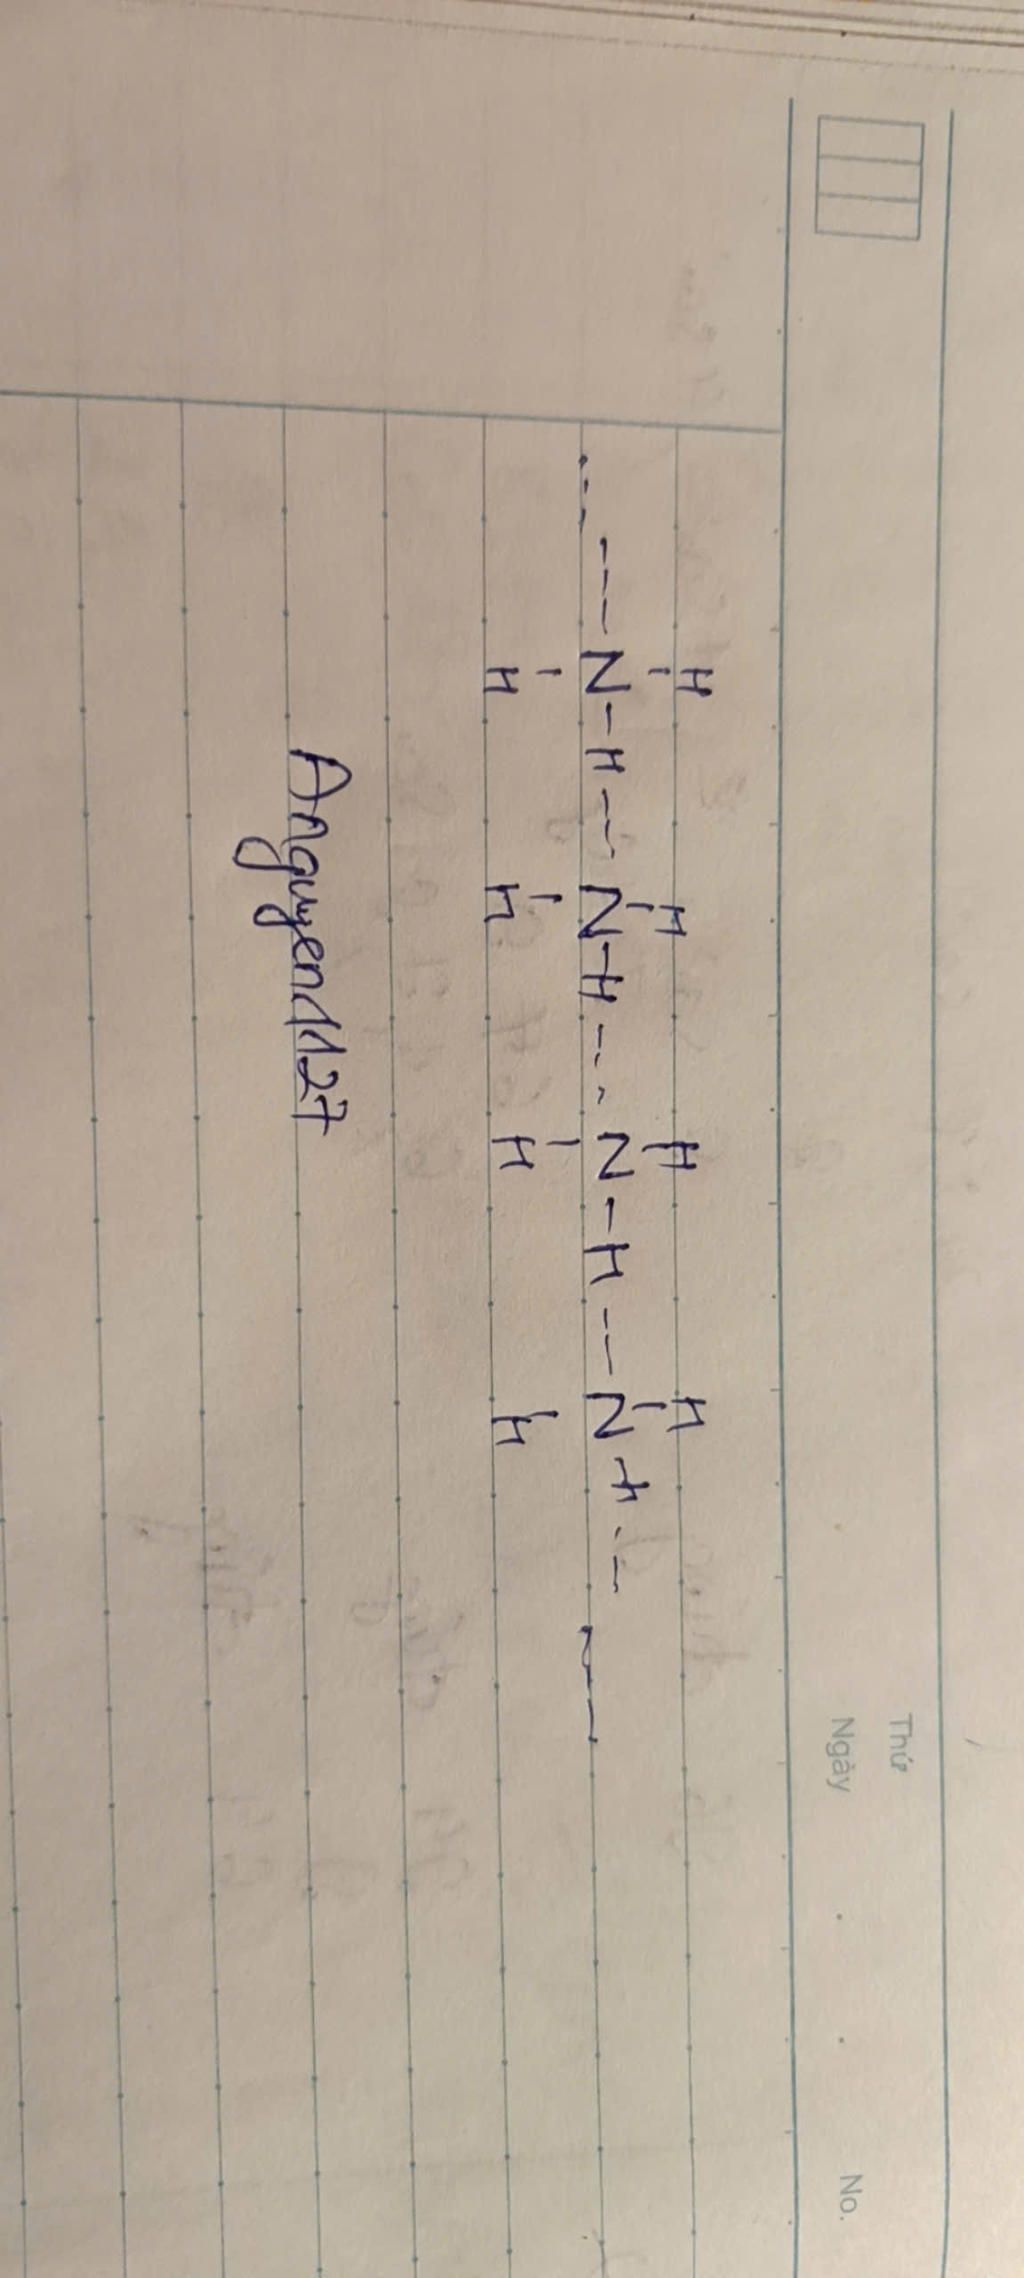 Thứ
Ngày . . No.
H H H H
... --- N - H --- N - H --- N - H --- N - H --- ---
H H H H
Anguyen1127